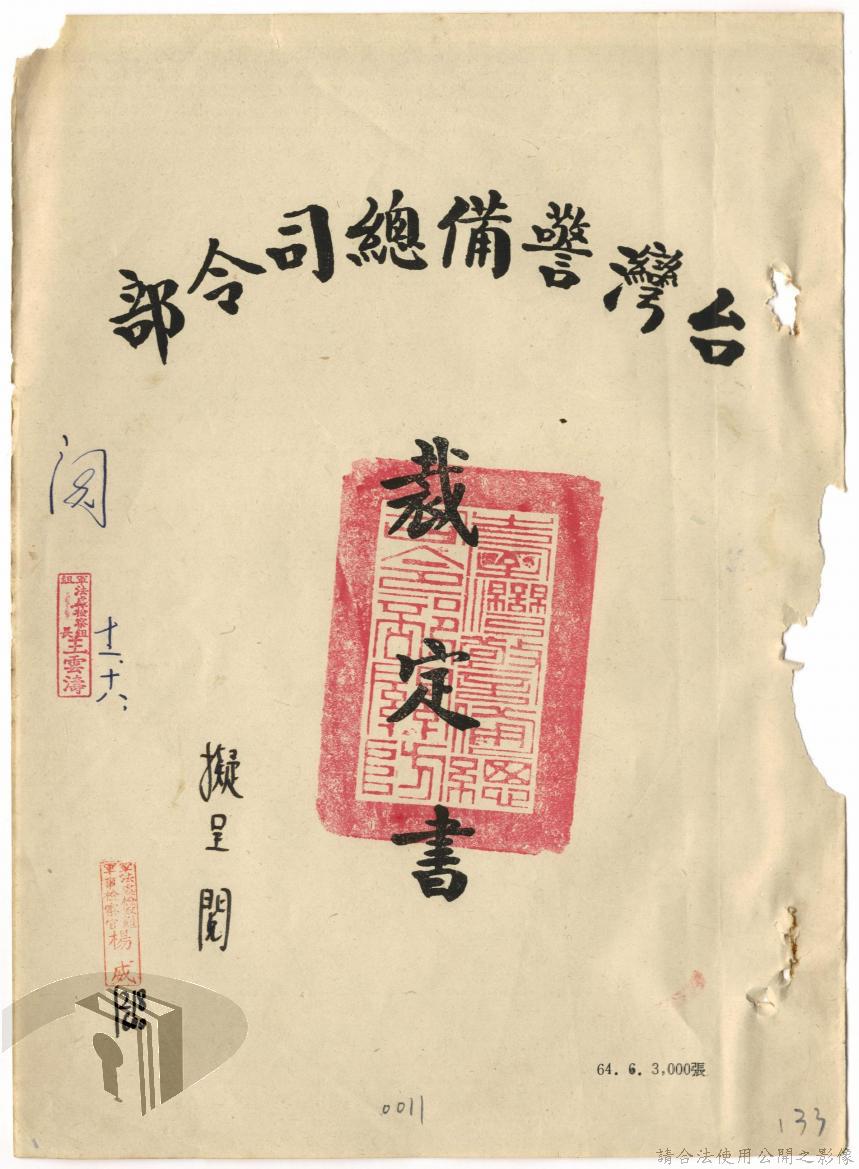 台灣警備總司令部
裁定書
擬呈閱
閱
十二、十八、
軍法處檢察組
組長王雲濤
軍事檢察官楊成
1218
64. 6. 3,000張
0011
133
請合法使用公開之影像